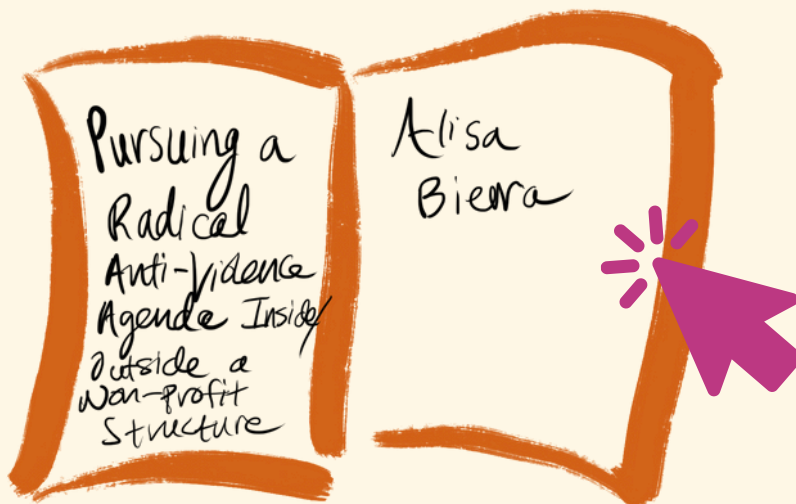 Pursuing a
Radical
Anti-Violence
Agenda Inside/
Outside a
Non-Profit
Structure
Alisa
Bierra